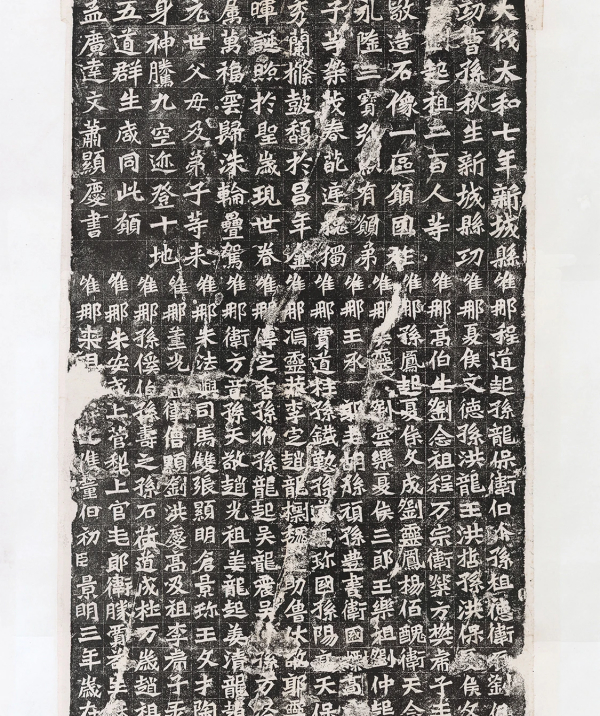 大代太和七年新城縣
功曹孫秋生新城縣功
曹劉起祖二百人等
敬造石像一區願國祚
永隆三寶弥顯有願弟
子等榮茂春葩庭槐獨
秀蘭條鼓馥於昌年金
暉誕照於聖歲現世眷
屬萬福雲歸洙輪疊駕
元世父母及弟子等来
身神騰九空迹登十地
五道群生咸同此願
孟廣達文蕭顯慶書
維那程道起孫龍保衛伯介孫祖德衛劉
維那夏侯文德孫洪龍王洪孫洪保侯文
維那高伯生劉念祖程万宗衛榮方樊虎子王
維那孫鳳起夏侯文成劉靈鳳楊伯醜衛天念
維那靈劉雲樂夏侯三郎王樂祖劉仲起
維那王承耶美胡絲頑孫豊書衛國高
維那賈道柱孫鐵懃孫為珎國孫陽天保
維那馮靈李定趙龍魏助魯伏敬耶靈
維那傅定香孫狗孫龍起吳龍震吳孫万
維那衛方晉孫天敬趙光祖姜龍起姜清龍趙
維那朱法興司馬雙張顯明倉景珎王文才陶
維那董光衛僧頭劉洪慶高及祖李虎子
維那孫傒伯孫壽之孫石道成杜万歲趙祖
維那朱安上管黎上官毛郎衛勝賈
維那董伯初日景明三年歲在